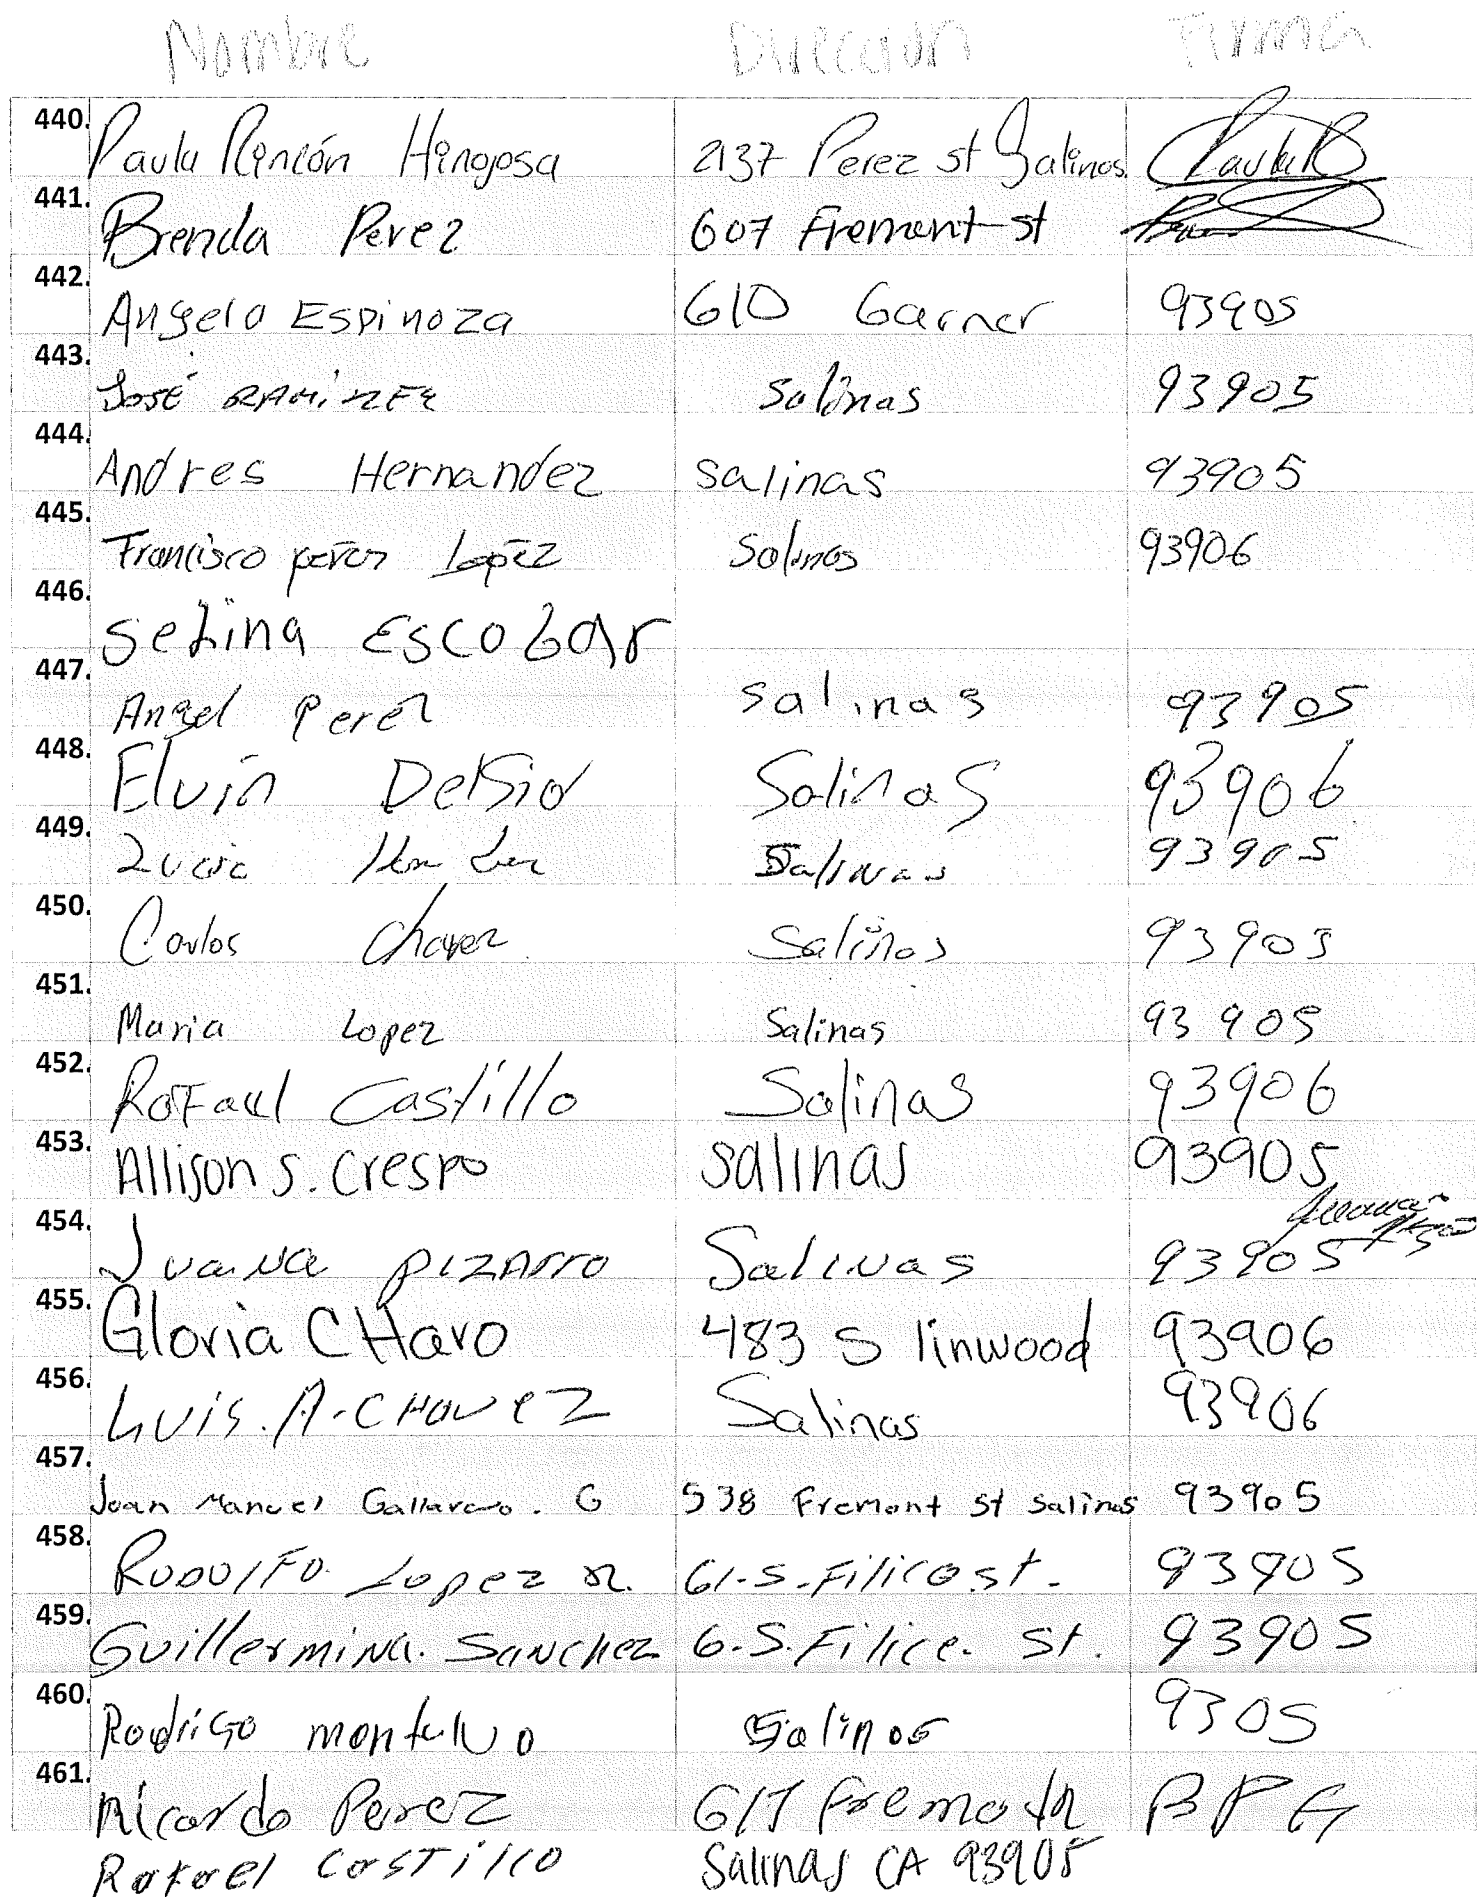 Nombre Dirección Firma
440. Paula Rincón Hinogosa 2137 Perez st Salinas. Paula R
441. Brenda Perez 607 Fremont st
442. Angelo Espinoza 610 Garner 93905
443. José RAMÍREZ Salinas 93905
444. Andres Hernandez Salinas 93905
445. Francisco perez Lopez Salinas 93906
446. Selina Escobar
447. Angel Perez Salinas 93905
448. Elvin DelSid Salinas 93906
449. Salinas 93905
450. Carlos Chavez Salinas 93905
451. Maria Lopez Salinas 93905
452. Rafael Castillo Salinas 93906
453. Allison S. Crespo Salinas 93905
454. Juana Pizarro Salinas 93905
455. Gloria CHavo 483 S linwood 93906
456. Luis. A. CHAVEZ Salinas 93906
457. Juan Manuel Gallardo. G 538 Fremont St Salinas 93905
458. RODOLFO. Lopez R. 61.S.Filico st. 93905
459. Guillermina. Sanchez 6.S.Filice. St. 93905
460. Rodrigo montalvo Salinas 9305
461. Ricardo Perez 617 Fremont
Rafael Costillo Salinas CA 93905